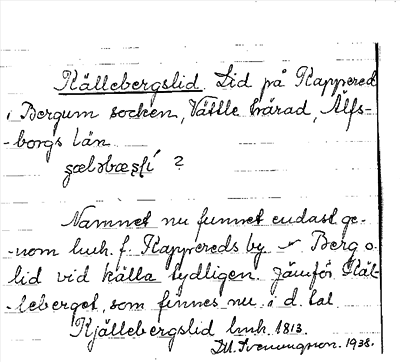 Källebergslid. Lid på Kappered
i Bergum socken, Vättle härad, Älfs-
-borgs län
?
Namnet nu funnet endast ge-
-nom lmh. f. Kappereds by - Berg o.
lid vid källa tydligen. Jämför Käl-
-leberget, som finnes nu i d. tal.
Kjällebergslid lmh. 1813.
1938.